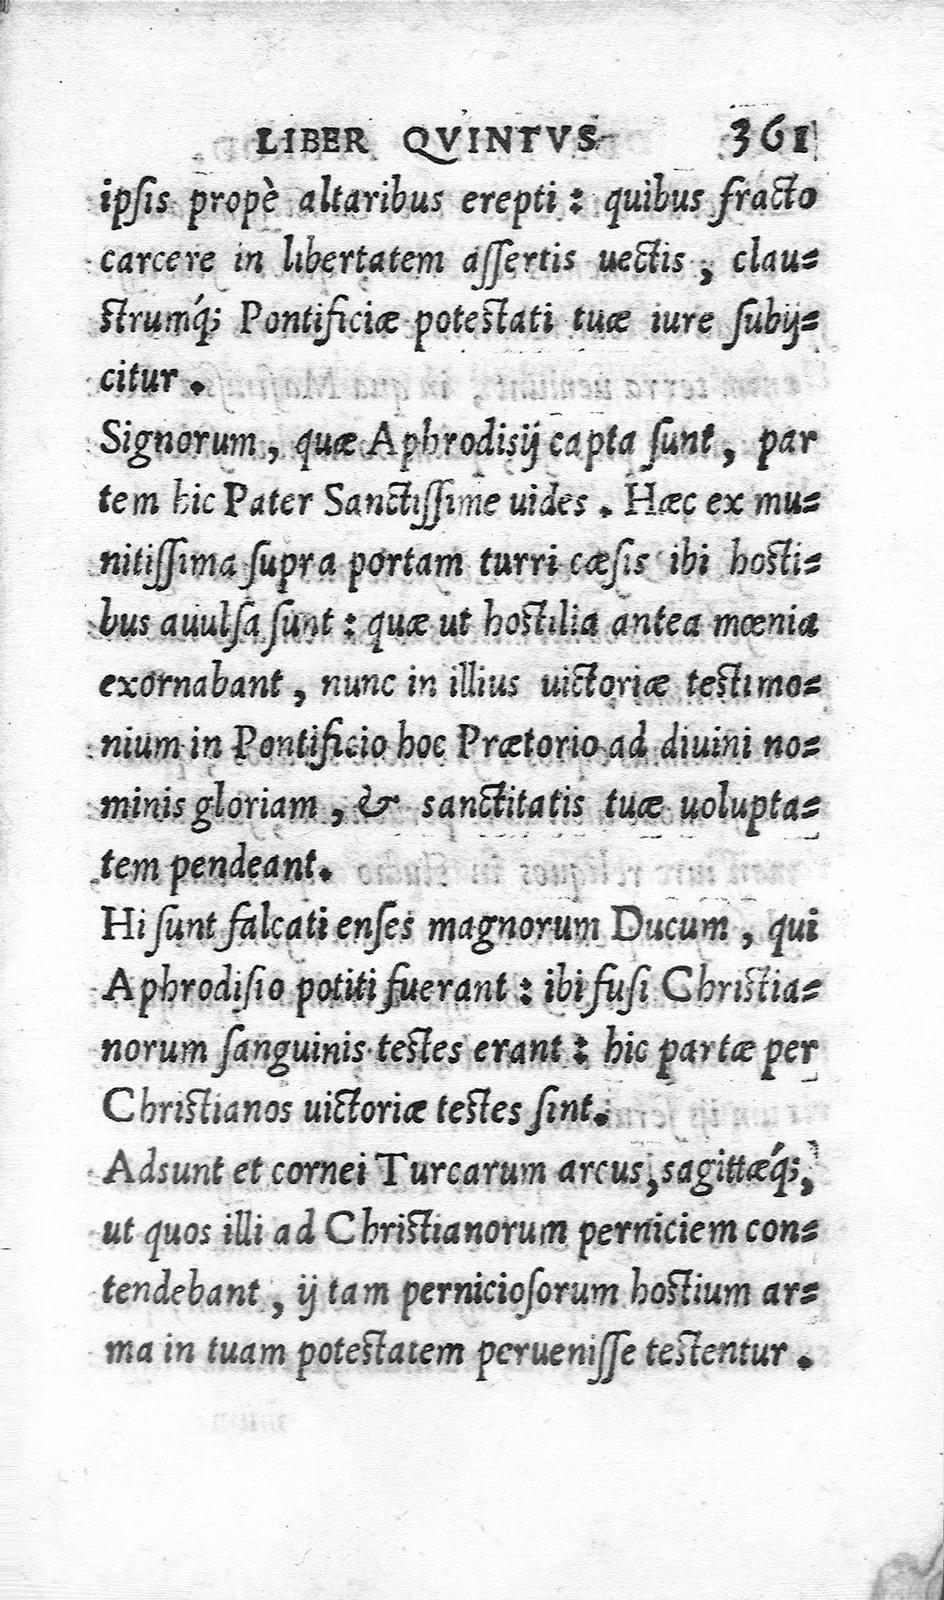 LIBER QVINTVS 361
ipſis propè altaribus erepti: quibus fracto
carcere in libertatem aſſertis uectis, clau=
ſtrumq́; Pontificiæ poteſtati tuæ iure ſubij=
citur.
Signorum, quæ Aphrodisij capta ſunt, par
tem hic Pater Sanctiſſime uides. Hæc ex mu=
nitiſſima ſupra portam turri cæſis ibi hoſti=
bus auulſa ſunt: quæ ut hoſtilia antea mœnia
exornabant, nunc in illius uictoriæ teſtimo=
nium in Pontificio hoc Prætorio ad diuini no=
minis gloriam, & sanctitatis tuæ uolupta=
tem pendeant.
Hi ſunt falcati enſes magnorum Ducum, qui
Aphrodiſio potiti fuerant: ibi fuſi Chriſtia=
norum ſanguinis teſtes erant: hic partæ per
Chriſtianos uictoriæ teſtes ſint.
Adsunt et cornei Turcarum arcus, sagittæq́;,
ut quos illi ad Chriſtianorum perniciem con=
tendebant, ij tam pernicioſorum hoſtium ar=
ma in tuam poteſtatem perueniſſe teſtentur.